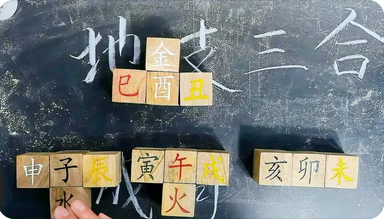 地支三合
金
巳酉丑
申子辰 寅午戌 亥卯未
水 火